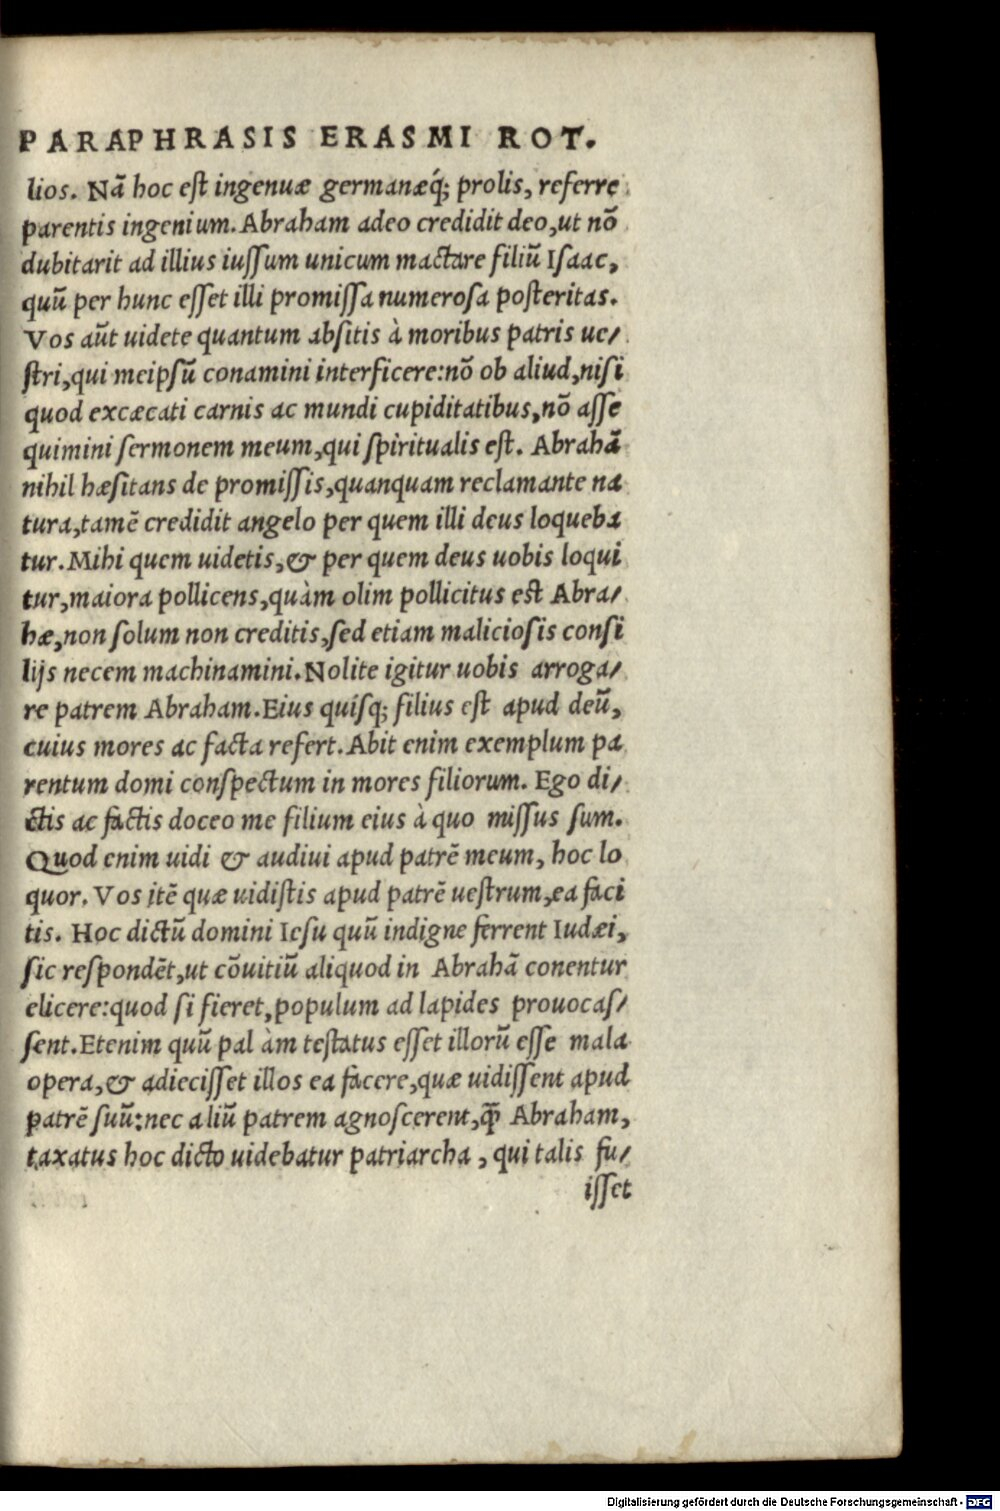 PARAPHRASIS ERASMI ROT.
lios. Nā hoc eſt ingenuæ germanæq́; prolis, referre
parentis ingenium. Abraham adeo credidit deo, ut nō
dubitarit ad illius iuſſum unicum mactare filiū Iſaac,
quū per hunc eſſet illi promiſſa numeroſa poſteritas.
Vos aūt uidete quantum abſitis à moribus patris ue/
ſtri, qui meipſū conamini interficere: nō ob aliud, niſi
quod excæcati carnis ac mundi cupiditatibus, nō aſſe
quimini ſermonem meum, qui ſpiritualis eſt. Abrahā
nihil hæſitans de promiſſis, quanquam reclamante na
tura, tamē credidit angelo per quem illi deus loqueba
tur. Mihi quem uidetis, & per quem deus uobis loqui
tur, maiora pollicens, quàm olim pollicitus est Abra/
hæ, non ſolum non creditis, ſed etiam malicioſis conſi
lijs necem machinamini. Nolite igitur uobis arroga/
re patrem Abraham. Eius quiſq; filius eſt apud deū,
cuius mores ac facta refert. Abit enim exemplum pa
rentum domi conſpectum in mores filiorum. Ego di/
ctis ac factis doceo me filium eius à quo miſſus ſum.
Quod enim uidi & audiui apud patrē meum, hoc lo
quor. Vos itē quæ uidiſtis apud patrē ueſtrum, ea faci
tis. Hoc dictū domini Ieſu quū indigne ferrent Iudæi,
ſic reſpondēt, ut cōuitiū aliquod in Abrahā conentur
elicere: quod ſi fieret, populum ad lapides prouocaſ/
ſent. Etenim quū pal àm teſtatus eſſet illorū eſſe mala
opera, & adieciſſet illos ea facere, quæ uidiſſent apud
patrē ſuū: nec aliū patrem agnoſcerent, q̄ꝫ Abraham,
taxatus hoc dicto uidebatur patriarcha, qui talis fu/
iſſet
Digitalisierung gefördert durch die Deutsche Forschungsgemeinschaft - DFG